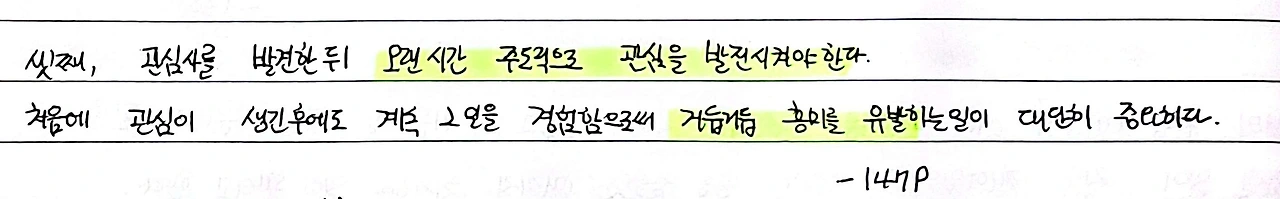 셋째, 관심사를 발견한 뒤 오랜 시간 주도적으로 관심을 발전시켜야 한다.
처음에 관심이 생긴 후에도 계속 그 일을 경험함으로써 거듭거듭 흥미를 유발하는 일이 대단히 중요하다.
- 147P